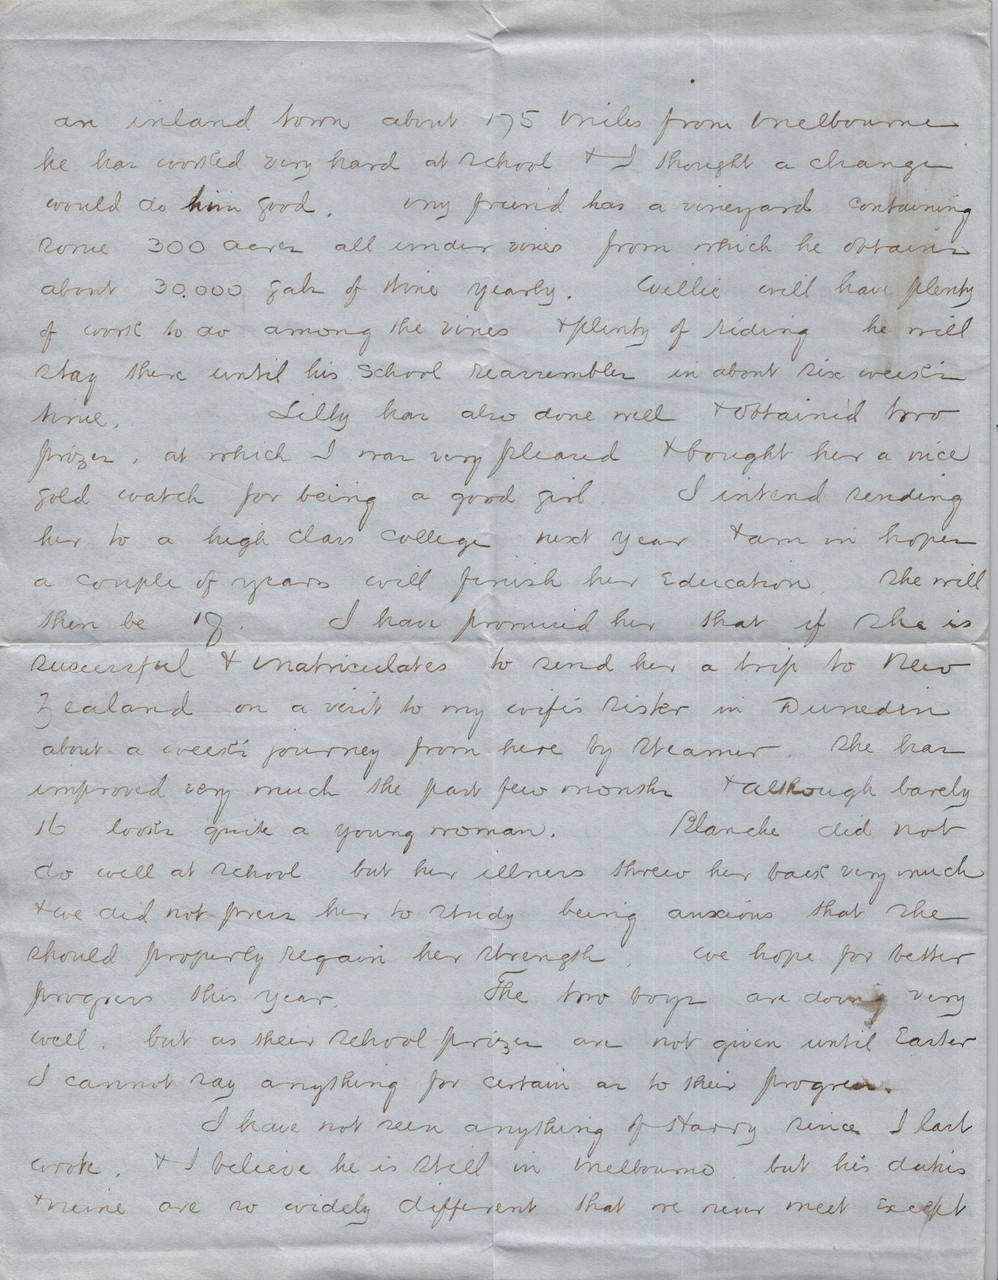 an inland town about 175 miles from Melbourne
he has worked very hard at school & I thought a change
would do him good. My friend has a vineyard containing
some 300 acres all under vines from which he obtains
about 30.000 gals of wine yearly. Willie will have plenty
of work to do among the vines & plenty of riding he will
stay there until his School reassembles in about six week's
time. Lilly has also done well & obtained two
prizes, at which I was very pleased & bought her a nice
gold watch for being a good girl. I intend sending
her to a high class College next year & am in hopes
a couple of years will finish her Education. She will
then be 18. I have promised her that if she is
successful & Matriculates to send her a trip to New
Zealand on a visit to my wife's sister in Dunedin
about a week's journey from here by Steamer. She has
improved very much the past few months & although barely
16 looks quite a young woman. Blanche did not
do well at school but her illness threw her back very much
& we did not press her to study being anxious that she
should properly regain her strength. We hope for better
progress this year. The two boys are doing very
well. but as their school prizes are not given until Easter
I cannot say anything for certain as to their progress.
I have not seen anything of Harry since I last
wrote. & I believe he is still in Melbourne but his duties
& mine are so widely different that we never meet except